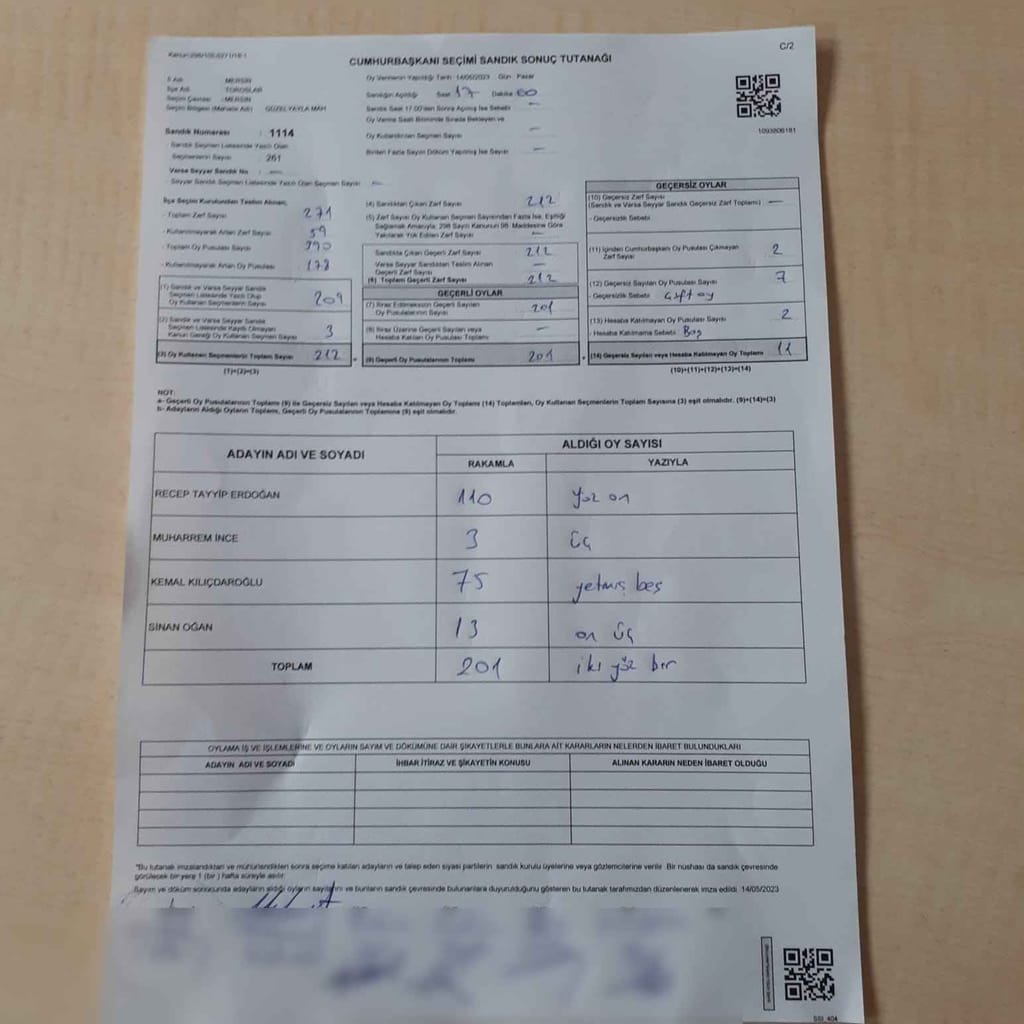 C/2
CUMHURBAŞKANI SEÇİMİ SANDIK SONUÇ TUTANAĞI
İl Adı : MERSİN
İlçe Adı : TOROSLAR
Seçim Çevresi : MERSİN
Seçim Bölgesi (Mahalle Adı) : GÜZELYAYLA MAH.
Sandık Numarası : 1114
Sandık Seçmen Listesinde Yazılı Olan
Seçmenlerin Sayısı : 261
Varsa Seyyar Sandık No : —
Seyyar Sandık Seçmen Listesinde Yazılı Olan Seçmen Sayısı : —
Oy Vermenin Yapıldığı Tarih : 14/05/2023 Gün : Pazar
Sandığın Açıldığı Saat 17 Dakika 00
Sandık Saat 17.00'den Sonra Açılmış İse Sebebi —
Oy Verme Saati Bitiminde Sırada Bekleyen ve
Oy Kullandırılan Seçmen Sayısı —
Birden Fazla Sayım Döküm Yapılmış İse Sayısı —
1093806181
İlçe Seçim Kurulundan Teslim Alınan;
- Toplam Zarf Sayısı 271
- Kullanılmayarak Artan Zarf Sayısı 59
- Toplam Oy Pusulası Sayısı 390
- Kullanılmayarak Artan Oy Pusulası 178
(1) Sandık ve Varsa Seyyar Sandık
Seçmen Listesinde Yazılı Olup
Oy Kullanan Seçmenlerin Sayısı 209
(2) Sandık ve Varsa Seyyar Sandık
Seçmen Listesinde Kayıtlı Olmayan
Kanun Gereği Oy Kullanan Seçmen Sayısı 3
(3) Oy Kullanan Seçmenlerin Toplam Sayısı 212
(1)+(2)=(3)
(4) Sandıktan Çıkan Zarf Sayısı 212
(5) Zarf Sayısı Oy Kullanan Seçmen Sayısından Fazla İse, Eşitliği
Sağlamak Amacıyla, 298 Sayılı Kanunun 98. Maddesine Göre
Yakılarak Yok Edilen Zarf Sayısı —
Sandıkta Çıkan Geçerli Zarf Sayısı 212
Varsa Seyyar Sandıktan Teslim Alınan
Geçerli Zarf Sayısı —
(6) Toplam Geçerli Zarf Sayısı 212
GEÇERLİ OYLAR
(7) İtiraz Edilmeksizin Geçerli Sayılan
Oy Pusulalarının Sayısı 201
(8) İtiraz Üzerine Geçerli Sayılan veya
Hesaba Katılan Oy Pusulaları Toplamı —
(9) Geçerli Oy Pusulalarının Toplamı 201
GEÇERSİZ OYLAR
(10) Geçersiz Zarf Sayısı
(Sandık ve Varsa Seyyar Sandık Geçersiz Zarf Toplamı) —
- Geçersizlik Sebebi
(11) İçinden Cumhurbaşkanı Oy Pusulası Çıkmayan
Zarf Sayısı 2
(12) Geçersiz Sayılan Oy Pusulası Sayısı 7
- Geçersizlik Sebebi çift oy
(13) Hesaba Katılmayan Oy Pusulası Sayısı 2
- Hesaba Katılmama Sebebi Boş
(14) Geçersiz Sayılan veya Hesaba Katılmayan Oy Toplamı 11
(10)+(11)+(12)+(13)=(14)
NOT:
a- Geçerli Oy Pusulalarının Toplamı (9) ile Geçersiz Sayılan veya Hesaba Katılmayan Oy Toplamı (14) Toplamları, Oy Kullanan Seçmenlerin Toplam Sayısına (3) eşit olmalıdır. (9)+(14)=(3)
b- Adayların Aldığı Oyların Toplamı, Geçerli Oy Pusulalarının Toplamına (9) eşit olmalıdır.
ADAYIN ADI VE SOYADI
ALDIĞI OY SAYISI
RAKAMLA YAZIYLA
RECEP TAYYİP ERDOĞAN 110 yüz on
MUHARREM İNCE 3 üç
KEMAL KILIÇDAROĞLU 75 yetmiş beş
SİNAN OĞAN 13 on üç
TOPLAM 201 iki yüz bir
OYLAMA İŞ VE İŞLEMLERİNE VE OYLARIN SAYIM VE DÖKÜMÜNE DAİR ŞİKAYETLERLE BUNLARA AİT KARARLARIN NELERDEN İBARET BULUNDUKLARI
ADAYIN ADI VE SOYADI İHBAR İTİRAZ VE ŞİKAYETİN KONUSU ALINAN KARARIN NEDEN İBARET OLDUĞU
*Bu tutanak imzalandıktan ve mühürlendikten sonra seçime katılan adayların ve talep eden siyasi partilerin sandık kurulu üyelerine veya gözlemcilerine verilir. Bir nüshası da sandık çevresinde
görülecek bir yere 1 (bir) hafta süreyle asılır.
Sayım ve döküm sonucunda adayların aldığı oyların sayılarını ve bunların sandık çevresinde bulunanlara duyurulduğunu gösteren bu tutanak tarafımızdan düzenlenerek imza edildi. 14/05/2023